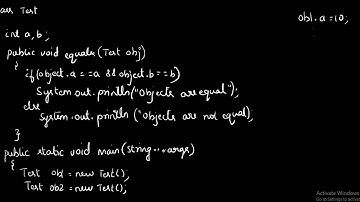 ass Test
obl.a=10;
int a,b;
public void equals(Test obj)
{
if(object.a==a && object.b==b)
System.out.println("Objects are equal");
else
System.out.println("Objects are not equal);
}
public static void main(String...args)
{ Test ob1=new Test();
Test ob2=new Test();
Activate Windows
Go to Settings to activate